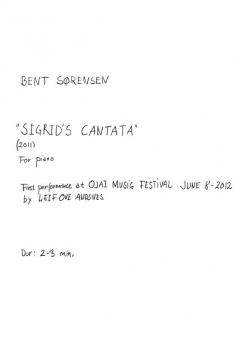 BENT SØRENSEN
"SIGRID'S CANTATA"
(2011)
For piano
First performance at OJAI MUSIC FESTIVAL JUNE 8'-2012
by LEIF OVE ANDSNES
Dur: 2-3 min.